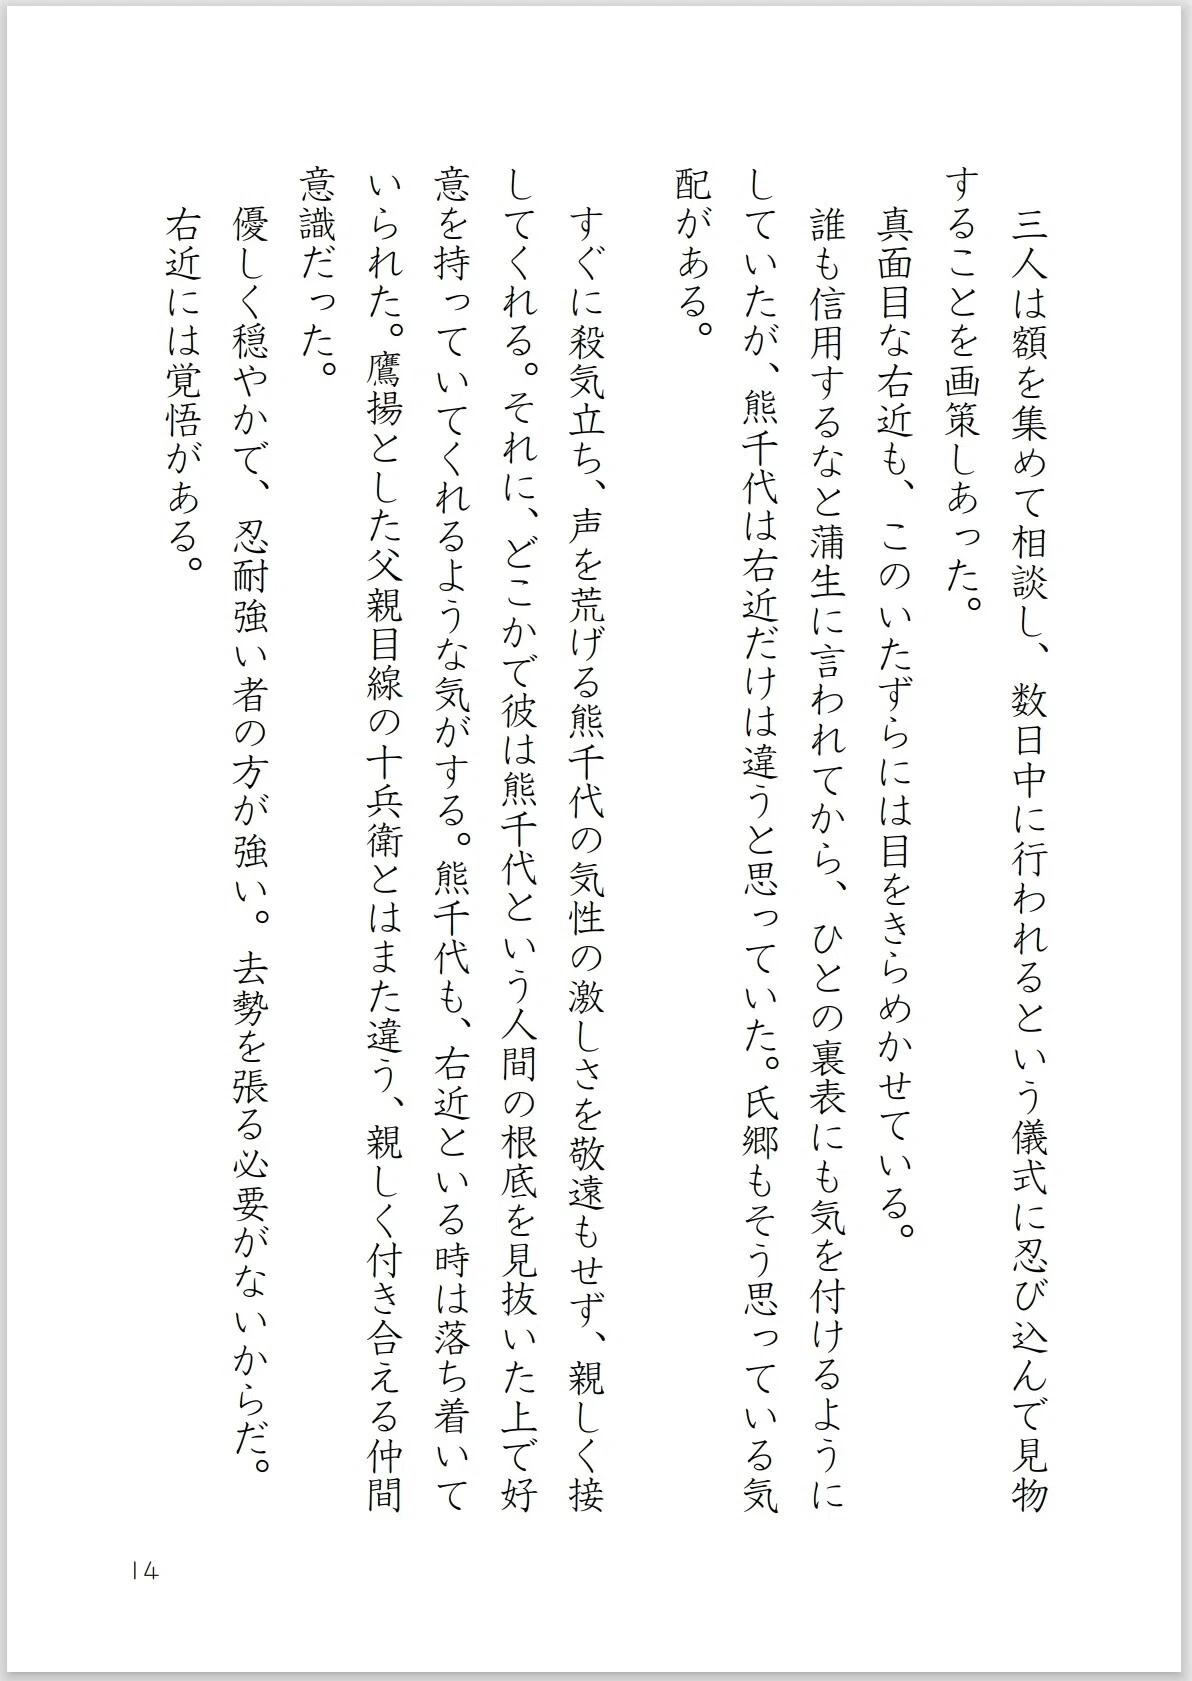 三人は額を集めて相談し、数日中に行われるという儀式に忍び込んで見物
することを画策しあった。
真面目な右近も、このいたずらには目をきらめかせている。
誰も信用するなと蒲生に言われてから、ひとの裏表にも気を付けるように
していたが、熊千代は右近だけは違うと思っていた。氏郷もそう思っている気
配がある。
すぐに殺気立ち、声を荒げる熊千代の気性の激しさを敬遠もせず、親しく接
してくれる。それに、どこかで彼は熊千代という人間の根底を見抜いた上で好
意を持っていてくれるような気がする。熊千代も、右近といる時は落ち着いて
いられた。鷹揚とした父親目線の十兵衛とはまた違う、親しく付き合える仲間
意識だった。
優しく穏やかで、忍耐強い者の方が強い。去勢を張る必要がないからだ。
右近には覚悟がある。
14